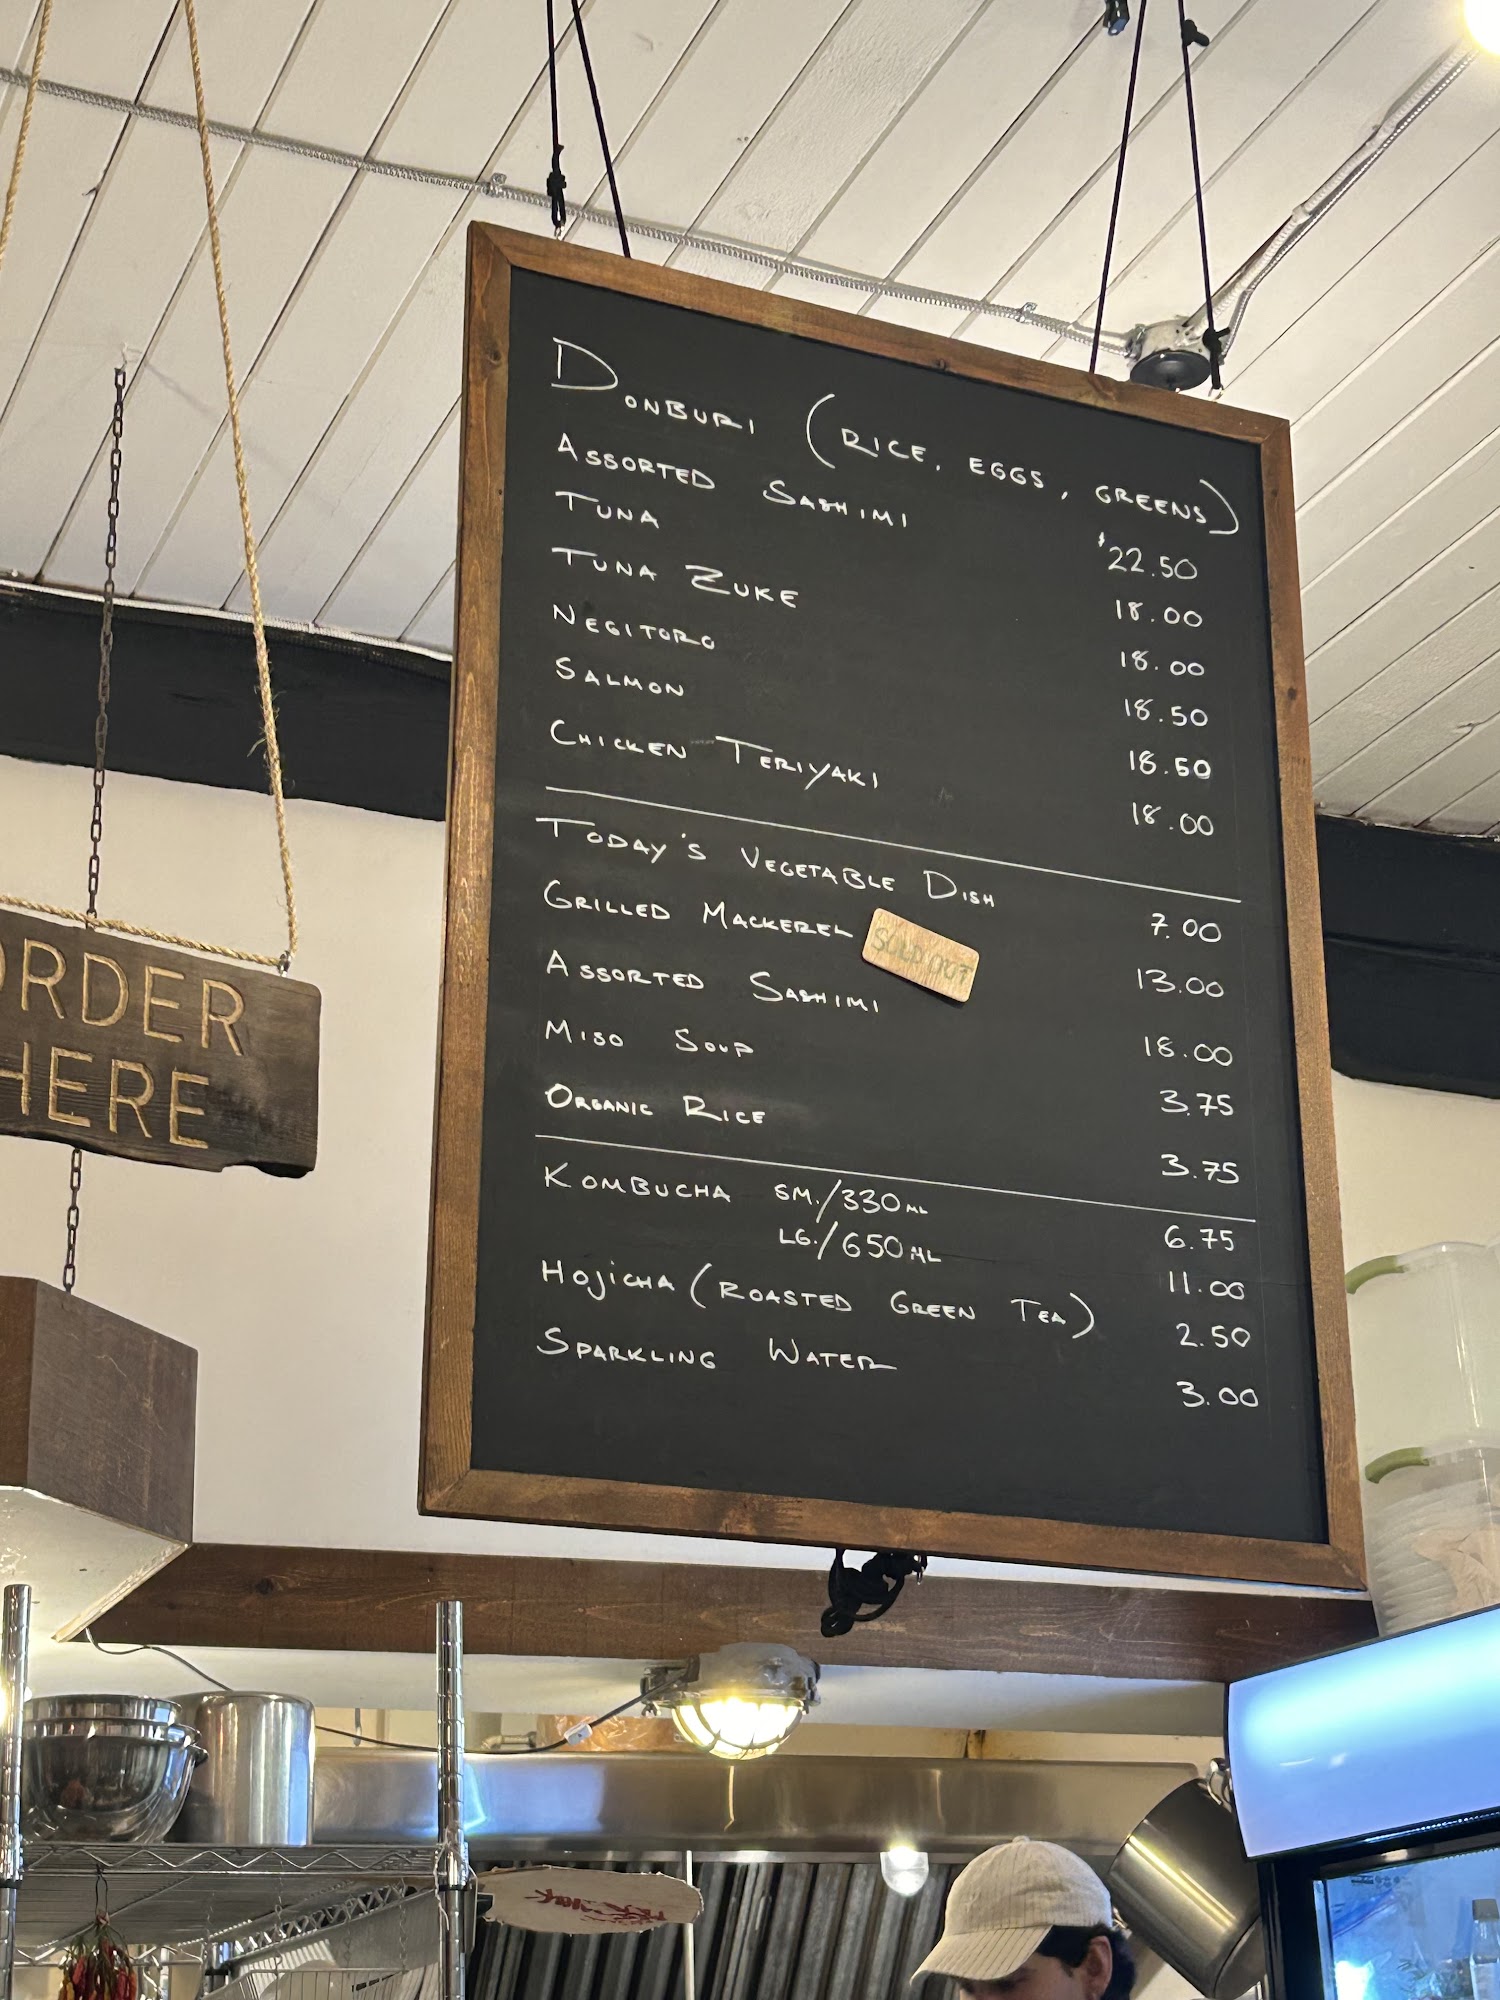 DONBURI (RICE, EGGS, GREENS)
ASSORTED SASHIMI $22.50
TUNA 18.00
TUNA ZUKE 18.00
NEGITORO 18.50
SALMON 18.50
CHICKEN TERIYAKI 18.00
TODAY'S VEGETABLE DISH 7.00
GRILLED MACKEREL SOLD OUT 13.00
ASSORTED SASHIMI 18.00
MISO SOUP 3.75
ORGANIC RICE 3.75
KOMBUCHA SM./330ML 6.75
LG./650ML 11.00
HOJICHA (ROASTED GREEN TEA) 2.50
SPARKLING WATER 3.00
ORDER
HERE